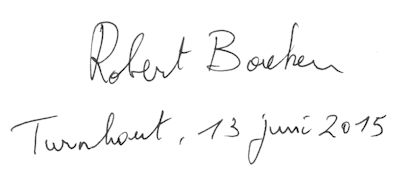 Robert Boeken
Turnhout, 13 juni 2015